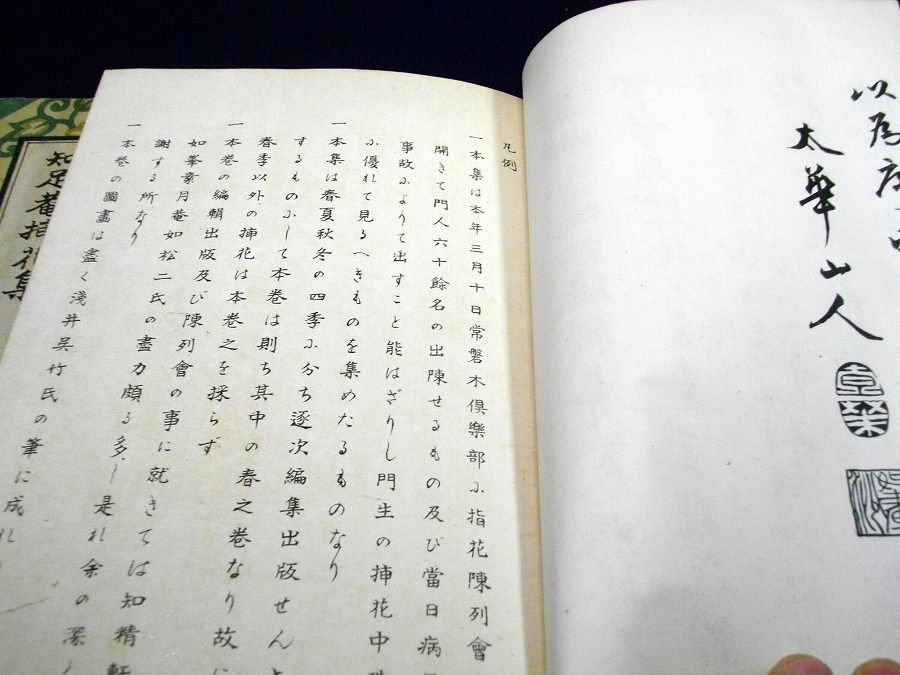 以為序
太華山人
凡例
一本集は本年三月十日常磐木倶樂部ふ指花陳列會
開きて門人六十餘名の出陳せるもの及び當日病
事故ふよりて出すこと能はざりし門生の挿花中
ふ優れて見るへきものを集めたるものなり
一本集は春夏秋冬の四季ふ分ち逐次編集出版せん
するものふして本巻は則ち其中の春之巻なり故に
春季以外の挿花は本巻之を採らず
一本巻の編輯出版及び陳列會の事に就きては知精軒
如峯素月菴如松二氏の盡力頗る多し是れ余の深
謝する所なり
一本巻の圖畫は盡く淺井呉竹氏の筆に成れ
知足菴挿花集